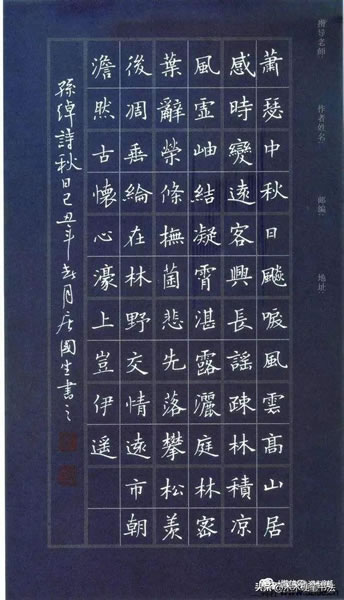 指导老師 作者姓名 邮编 地址
蕭瑟中秋日飈唳風雲高山居
感時變遠客興長謡疎林積凉
風虛岫結凝霄湛露灑庭林密
葉辭榮條撫菌悲先落攀松羨
後凋垂綸在林野交情遠市朝
澹然古懷心濠上豈伊遥
孫綽詩秋日己丑年月國生書之